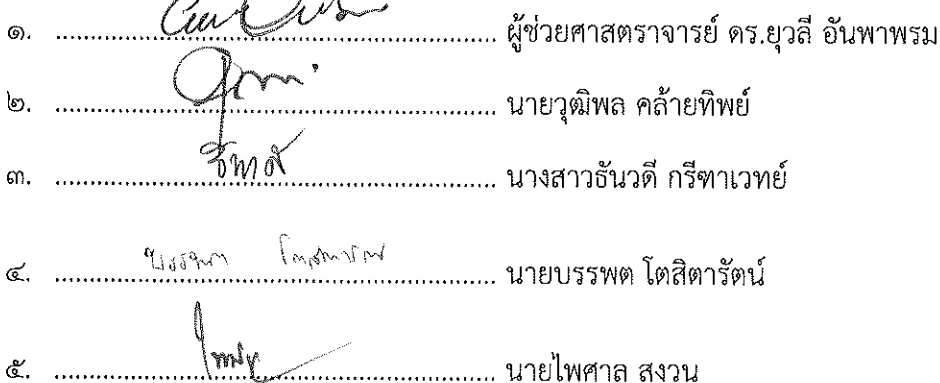 ๑. ........................................ ผู้ช่วยศาสตราจารย์ ดร.ยุวลี อันพาพรม
๒. ........................................ นายวุฒิพล คล้ายทิพย์
๓. ........................................ นางสาวธันวดี กรีฑาเวทย์
๔. ........................................ นายบรรพต โตสิตารัตน์
๕. ........................................ นายไพศาล สงวน